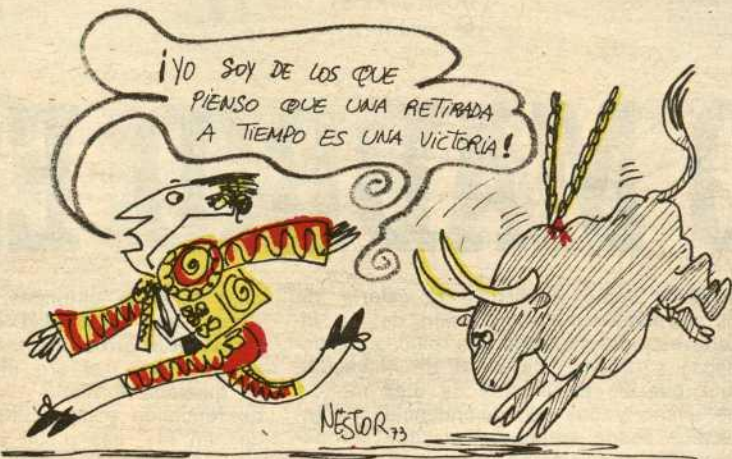 ¡YO SOY DE LOS QUE
PIENSO QUE UNA RETIRADA
A TIEMPO ES UNA VICTORIA!
NÉSTOR 73